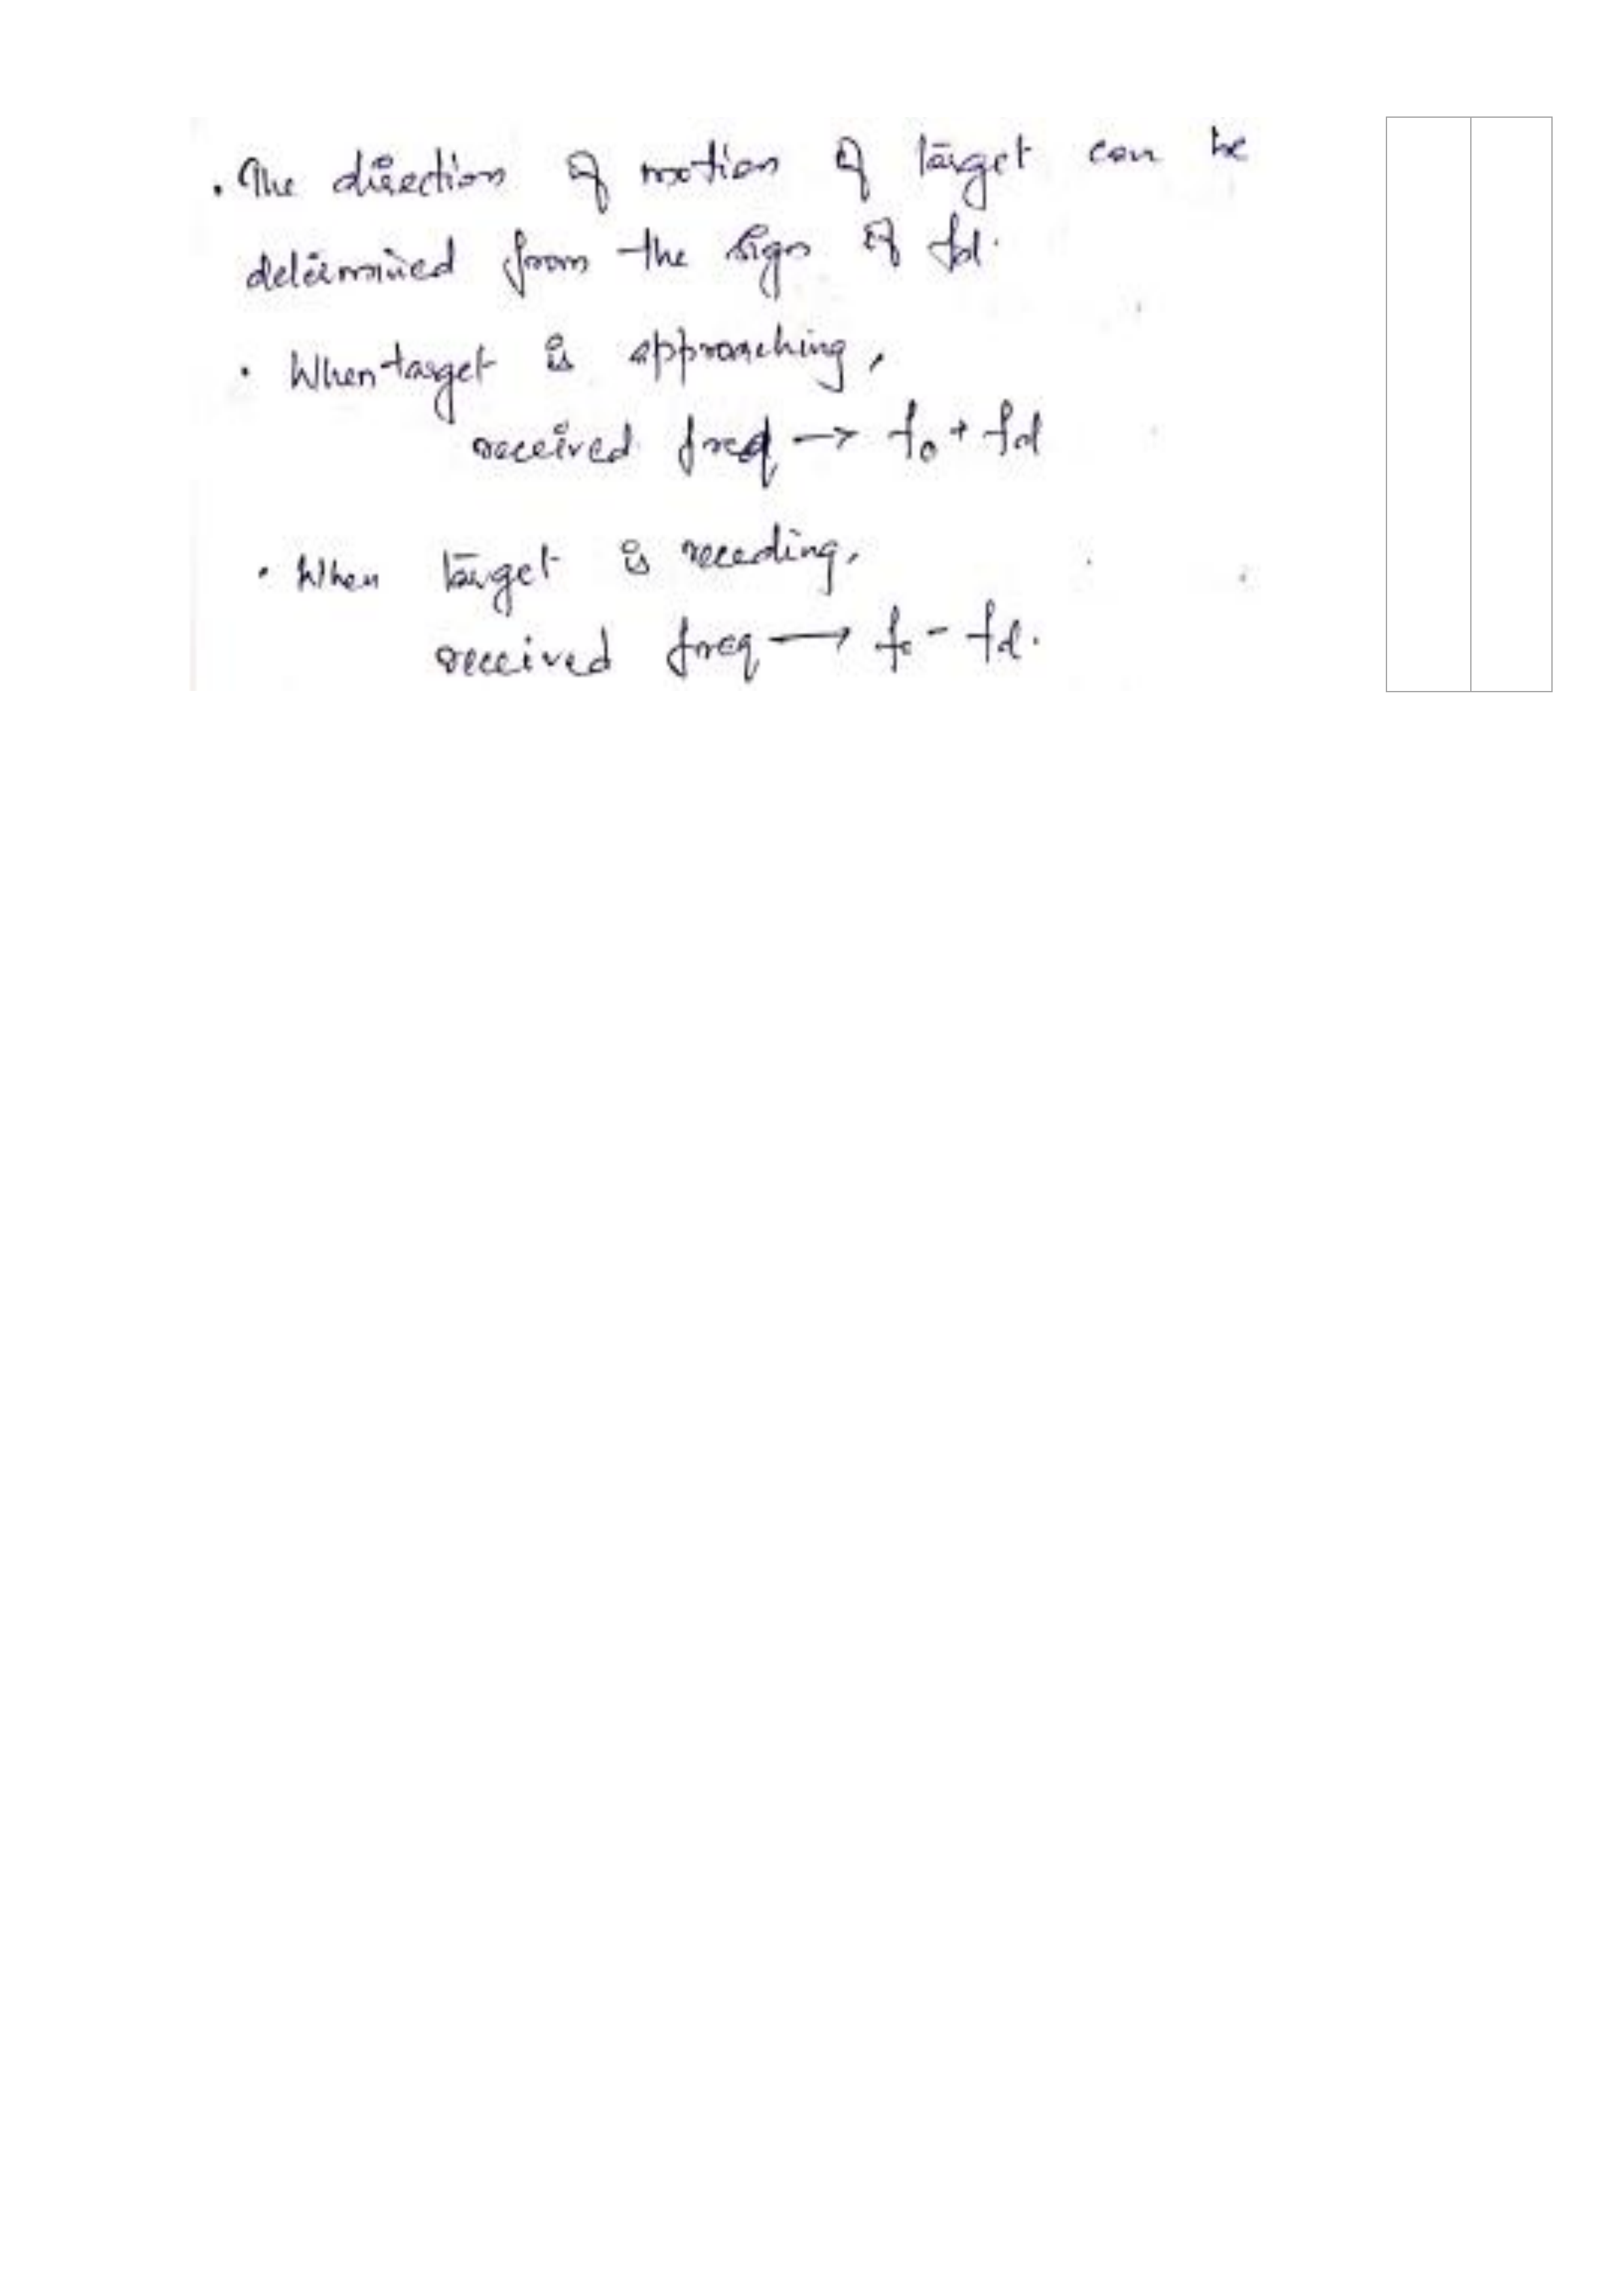 . The direction of motion of target can be
determined from the sign of fd.
• When target is approaching,
received freq → fo + fd
• When target is receding,
received freq → fo - fd.